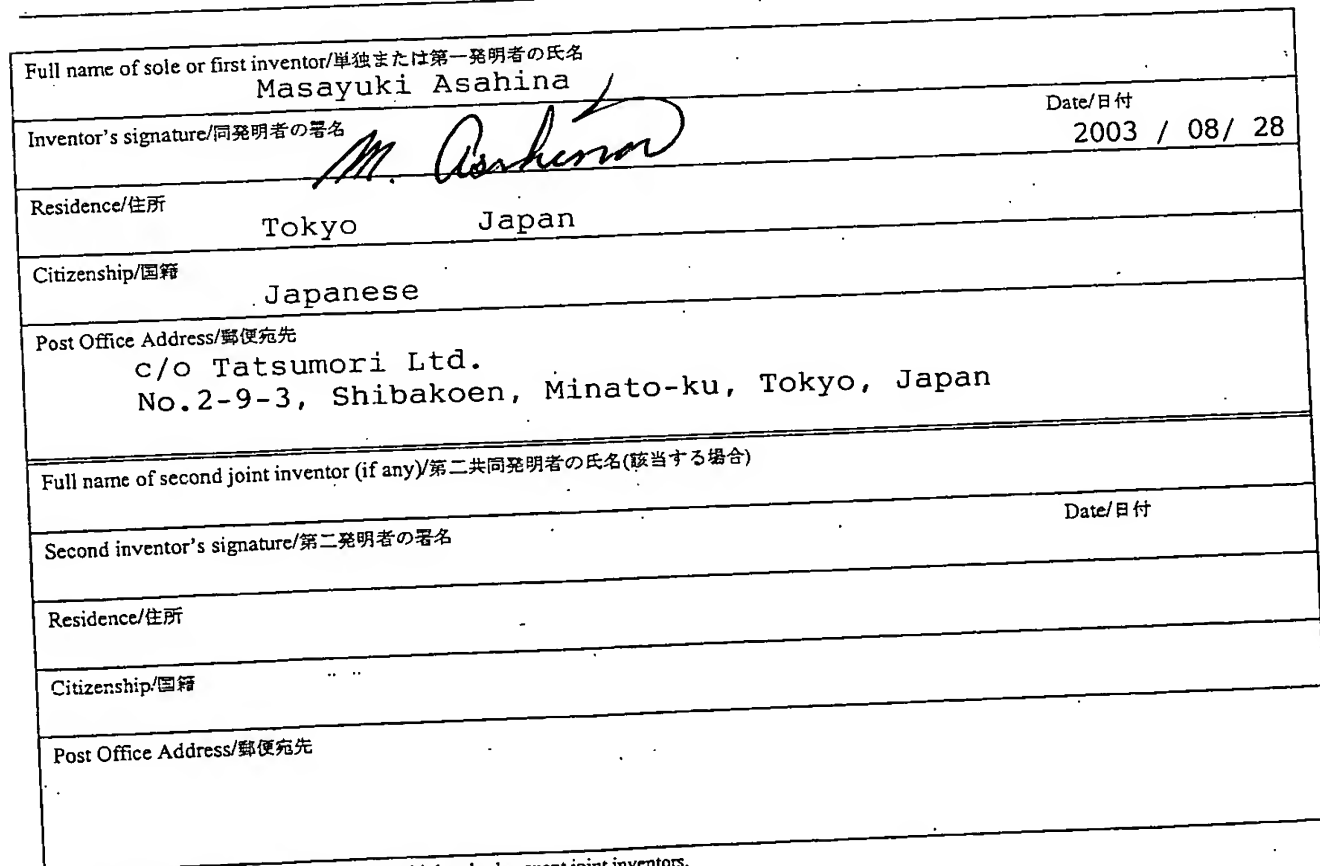 Full name of sole or first inventor/単独または第一発明者の氏名
Masayuki Asahina
Inventor's signature/同発明者の署名
Date/日付
M. Asahina
2003 / 08/ 28
Residence/住所
Tokyo Japan
Citizenship/国籍
Japanese
Post Office Address/郵便宛先
c/o Tatsumori Ltd.
No.2-9-3, Shibakoen, Minato-ku, Tokyo, Japan
Full name of second joint inventor (if any)/第二共同発明者の氏名(該当する場合)
Second inventor's signature/第二発明者の署名
Date/日付
Residence/住所
Citizenship/国籍
Post Office Address/郵便宛先
joint inventors.